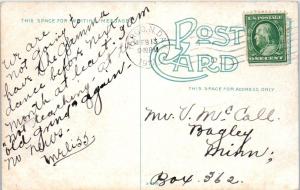 THIS SPACE FOR WRITING MESSAGES
POST CARD
THIS SPACE FOR ADDRESS ONLY
FEB 15
ONE CENT
We are
not going to
have the
dance before next
month at least. I am
not teaching at
old grind again.
no news.
Mr. V. McCall.
Bagley
Minn.
Box 362.